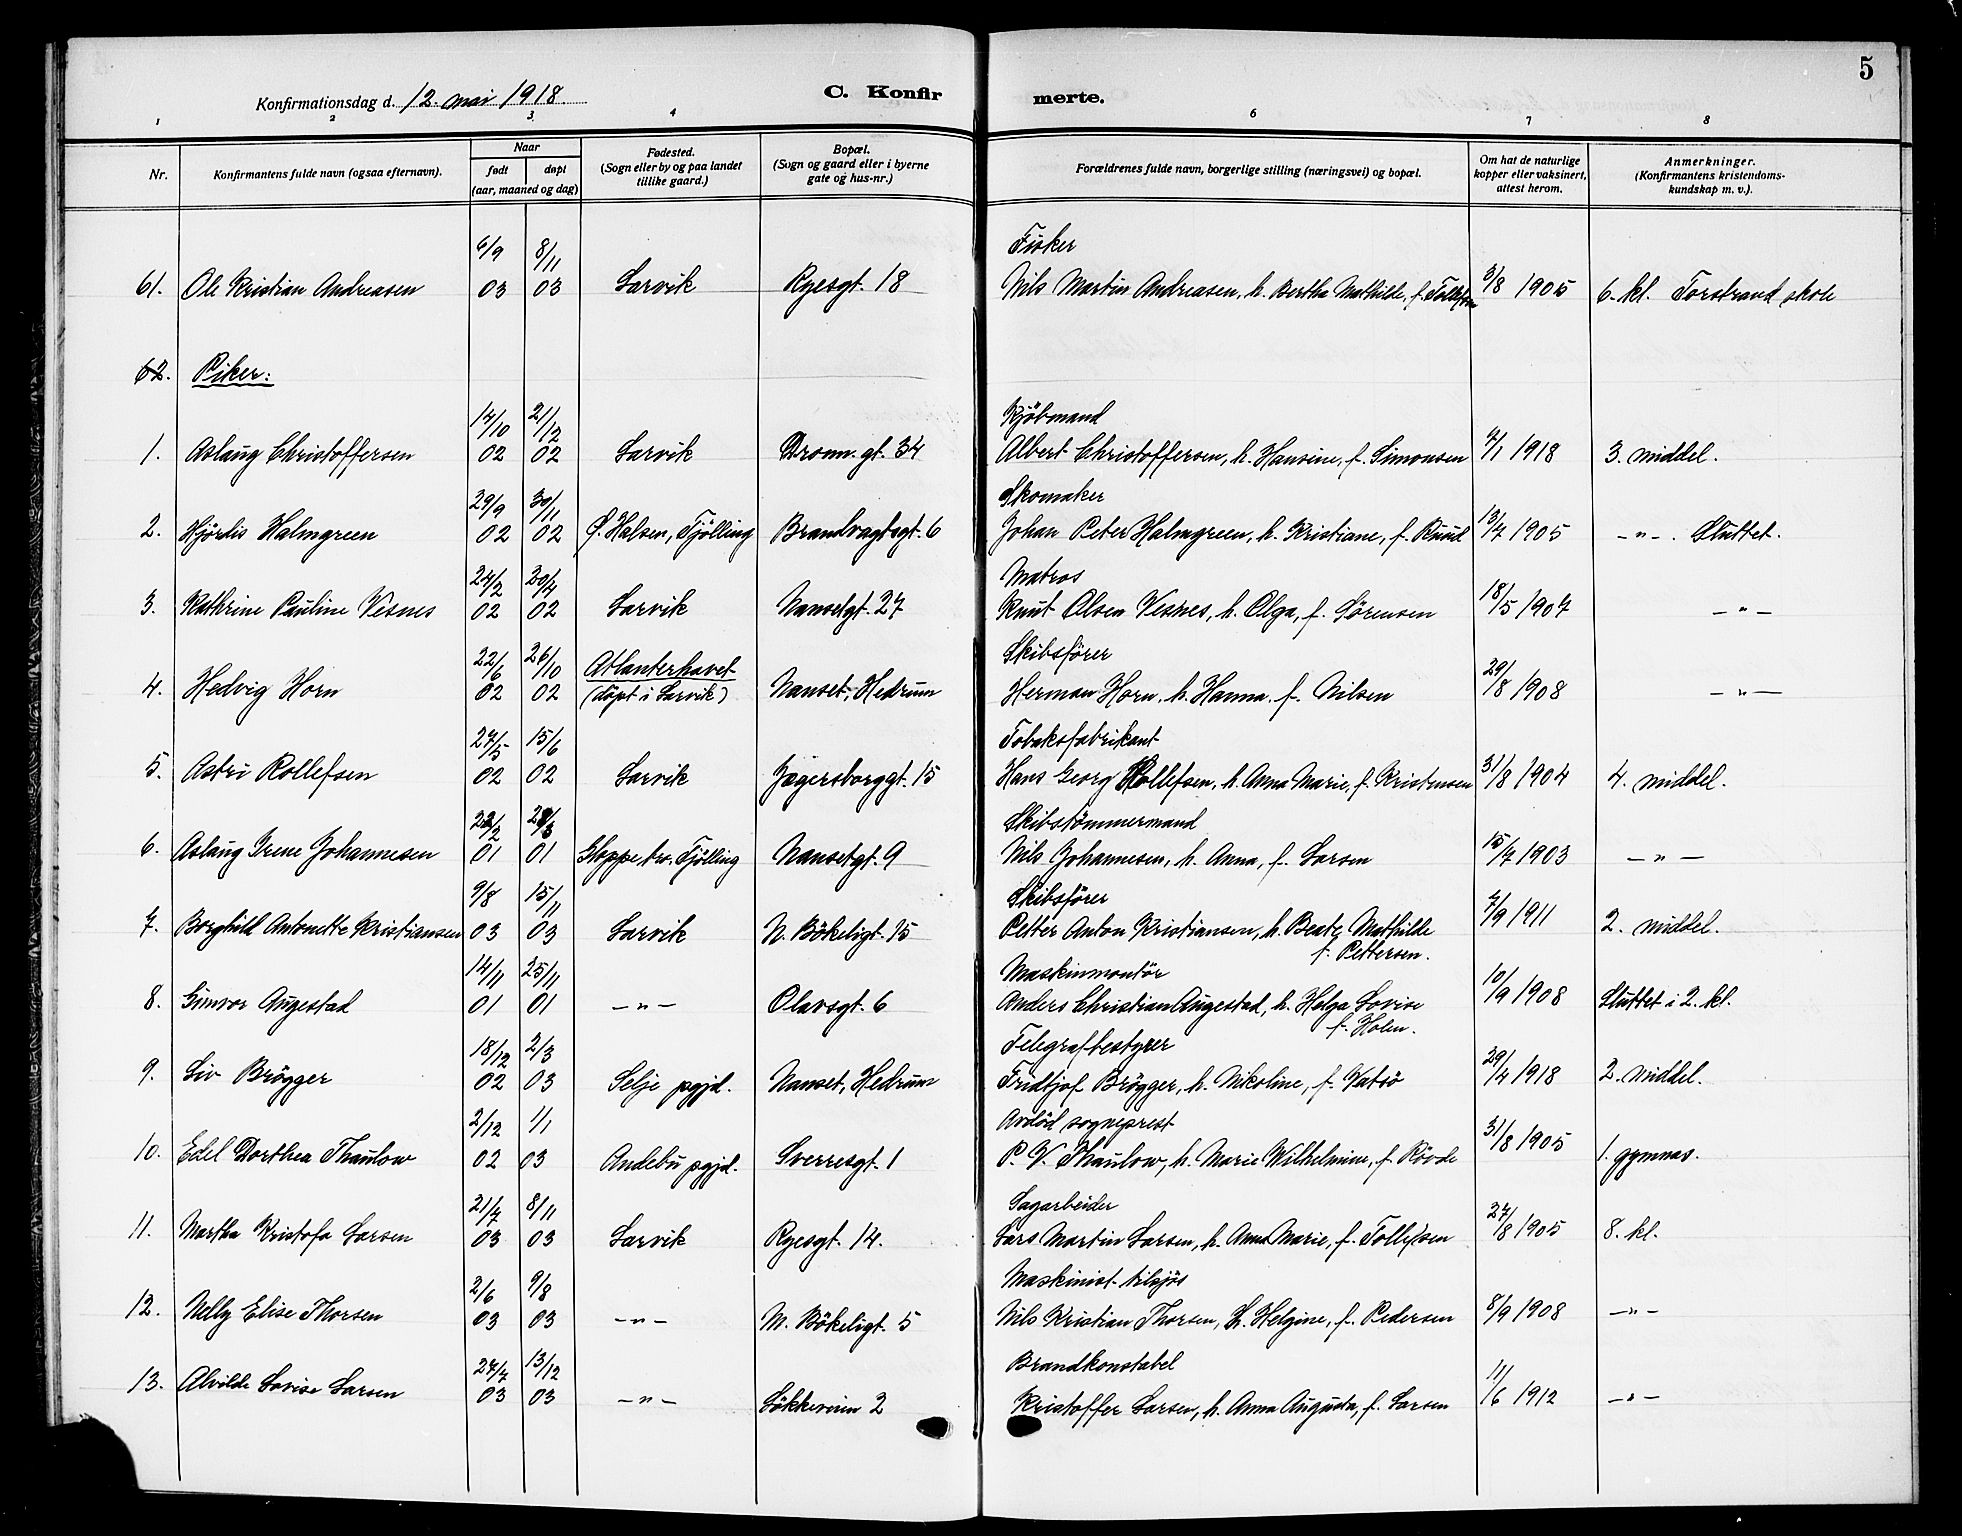 5
Konfirmationsdag d. 12. mai 1918. C. Konfirmerte.
1 2 3. 4 6 7 8
Nr. Konfirmantens fulde navn (ogsaa efternavn). Naar født døpt (aar, maaned og dag) Fødested. (Sogn eller by og paa landet tillike gaard.) Bopæl. (Sogn og gaard eller i byerne gate og hus-nr.) Forældrenes fulde navn, borgerlige stilling (næringsvei) og bopæl. Om hat de naturlige kopper eller vaksinert, attest herom. Anmerkninger. (Konfirmantens kristendomskundskap m. v.).
6/9 8/11 Fisker
61. Ole Kristian Andreasen 03 03 Larvik Ryesgt. 18 Nils Martin Andreasen, h. Bertha Mathilde, f. Tollefsen 3/8 1905 6. kl. Torstrand skole
62. Piker:
14/10 21/12 Kjöbmand
1. Aslaug Christoffersen 02 02 Larvik Dronn. gt. 34 Albert Christoffersen, h. Hansine, f. Simonsen 4/1 1918 3. middel.
29/9 30/11 Skomaker
2. Hjördis Halmgreen 02 02 Ö. Halsen, Tjölling Brandvagtsgt. 6 Johan Peter Halmgreen, h. Kristiane, f. Ruud 13/7 1905 -"-. Sluttet.
24/2 30/4 Matros
3. Kathrine Pauline Vesnes 02 02 Larvik Nansetgt. 27 Knut Olsen Vesnes, h. Olga, f. Sörensen 18/5 1907 -"-
22/6 26/10 Atlanterhavet Skibsförer
4. Hedvig Horn 02 02 (döpt i Larvik) Nanset, Hedrum Herman Horn, h. Hanna, f. Nilsen 29/8 1908 -"-
27/5 15/6 Tobaksfabrikant
5. Astri Rollefsen 02 02 Larvik Jægersborggt. 15 Hans Georg Rollefsen, h. Anna Marie, f. Kristensen 31/8 1904 4. middel.
22/2 28/3 Skibstömmermand
6. Aslaug Irene Johannesen 01 01 Tjölling Nansetgt. 9 Nils Johannesen, h. Anna, f. Larsen 15/7 1903 -"-
9/8 15/11 Skibsförer
7. Borghild Antonette Kristiansen 03 03 Larvik N. Bökeligt. 15 Petter Anton Kristiansen, h. Beate Mathilde 7/9 1911 2. middel.
f. Pettersen.
14/11 25/11 Maskinmontör
8. Gunvor Augestad 01 01 -"- Olavsgt. 6 Anders Christian Augestad, h. Helga Lovise 10/9 1908 Sluttet i 2. kl.
f. Holm.
18/12 2/3 Telegrafbestyrer
9. Liv Brögger 02 03 Selje pgjd. Nanset, Hedrum Fridtjof Brögger, h. Nikoline, f. Vatsö 29/4 1918 2. middel.
2/12 1/1 Avdöd sogneprest
10. Edel Dorthea Thaulow 02 03 Andebu pgjd. Sverresgt. 1 P. V. Thaulow, h. Marie Wilhelmine, f. Rövde 31/8 1905 1. gymnas.
21/7 8/11 Sagarbeider
11. Martha Kristofa Larsen 03 03 Larvik Ryesgt. 14. Lars Martin Larsen, h. Anna Marie, f. Tollefsen 27/8 1905 8. kl.
2/6 9/8 Maskinist tilsjös
12. Nelly Elise Thorsen 03 03 -"- N. Bökeligt. 5 Nils Kristian Thorsen, h. Helgine, f. Pedersen 8/9 1908 -"-
27/7 13/12 Brandkonstabel
13. Alvilde Lovise Larsen 03 03 -"- Lökkeveien 2 Kristoffer Larsen, h. Anna Augusta, f. Larsen 11/6 1912 -"-